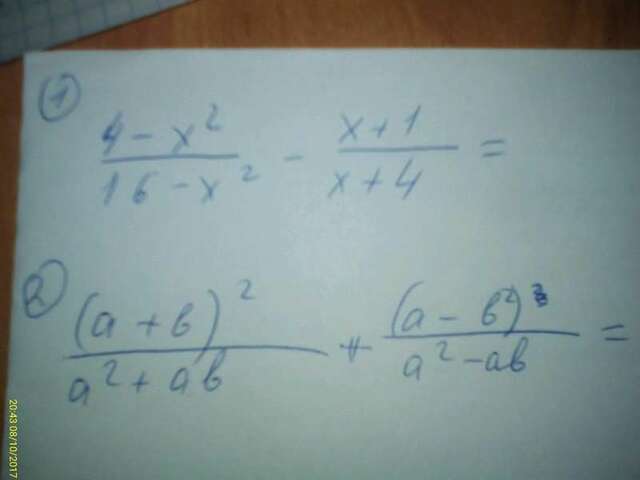 ①
4 - x² / 16 - x² - x + 1 / x + 4 =
②
(a + b)² / a² + ab + (a - b²) / a² - ab =
20:43 08/10/2017